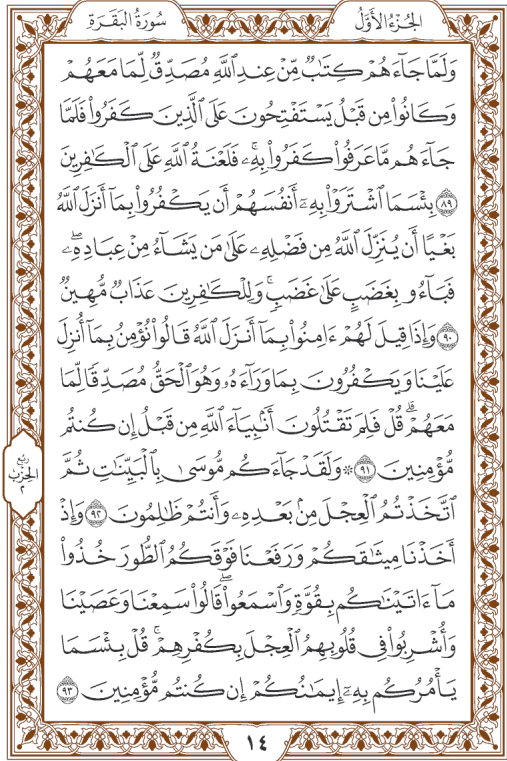 الجُزْءُ الأَوَّلُ
سُورَةُ البَقَرَةِ
وَلَمَّا جَآءَهُمْ كِتَٰبٌ مِّنْ عِندِ ٱللَّهِ مُصَدِّقٌ لِّمَا مَعَهُمْ
وَكَانُوا۟ مِن قَبْلُ يَسْتَفْتِحُونَ عَلَى ٱلَّذِينَ كَفَرُوا۟ فَلَمَّا
جَآءَهُم مَّا عَرَفُوا۟ كَفَرُوا۟ بِهِۦ ۚ فَلَعْنَةُ ٱللَّهِ عَلَى ٱلْكَٰفِرِينَ
٨٩ بِئْسَمَا ٱشْتَرَوْا۟ بِهِۦٓ أَنفُسَهُمْ أَن يَكْفُرُوا۟ بِمَآ أَنزَلَ ٱللَّهُ
بَغْيًا أَن يُنَزِّلَ ٱللَّهُ مِن فَضْلِهِۦ عَلَىٰ مَن يَشَآءُ مِنْ عِبَادِهِۦ ۖ
فَبَآءُو بِغَضَبٍ عَلَىٰ غَضَبٍ ۚ وَلِلْكَٰفِرِينَ عَذَابٌ مُّهِينٌ
٩٠ وَإِذَا قِيلَ لَهُمْ ءَامِنُوا۟ بِمَآ أَنزَلَ ٱللَّهُ قَالُوا۟ نُؤْمِنُ بِمَآ أُنزِلَ
عَلَيْنَا وَيَكْفُرُونَ بِمَا وَرَآءَهُۥ وَهُوَ ٱلْحَقُّ مُصَدِّقًا لِّمَا
مَعَهُمْ ۗ قُلْ فَلِمَ تَقْتُلُونَ أَنۢبِيَآءَ ٱللَّهِ مِن قَبْلُ إِن كُنتُم
مُّؤْمِنِينَ ٩١ ۞ وَلَقَدْ جَآءَكُم مُّوسَىٰ بِٱلْبَيِّنَٰتِ ثُمَّ
ٱتَّخَذْتُمُ ٱلْعِجْلَ مِنۢ بَعْدِهِۦ وَأَنتُمْ ظَٰلِمُونَ ٩٢ وَإِذْ
أَخَذْنَا مِيثَٰقَكُمْ وَرَفَعْنَا فَوْقَكُمُ ٱلطُّورَ خُذُوا۟
مَآ ءَاتَيْنَٰكُم بِقُوَّةٍ وَٱسْمَعُوا۟ ۖ قَالُوا۟ سَمِعْنَا وَعَصَيْنَا
وَأُشْرِبُوا۟ فِى قُلُوبِهِمُ ٱلْعِجْلَ بِكُفْرِهِمْ ۚ قُلْ بِئْسَمَا
يَأْمُرُكُم بِهِۦٓ إِيمَٰنُكُمْ إِن كُنتُم مُّؤْمِنِينَ ٩٣
رُبْع
الحِزْب
٢
١٤